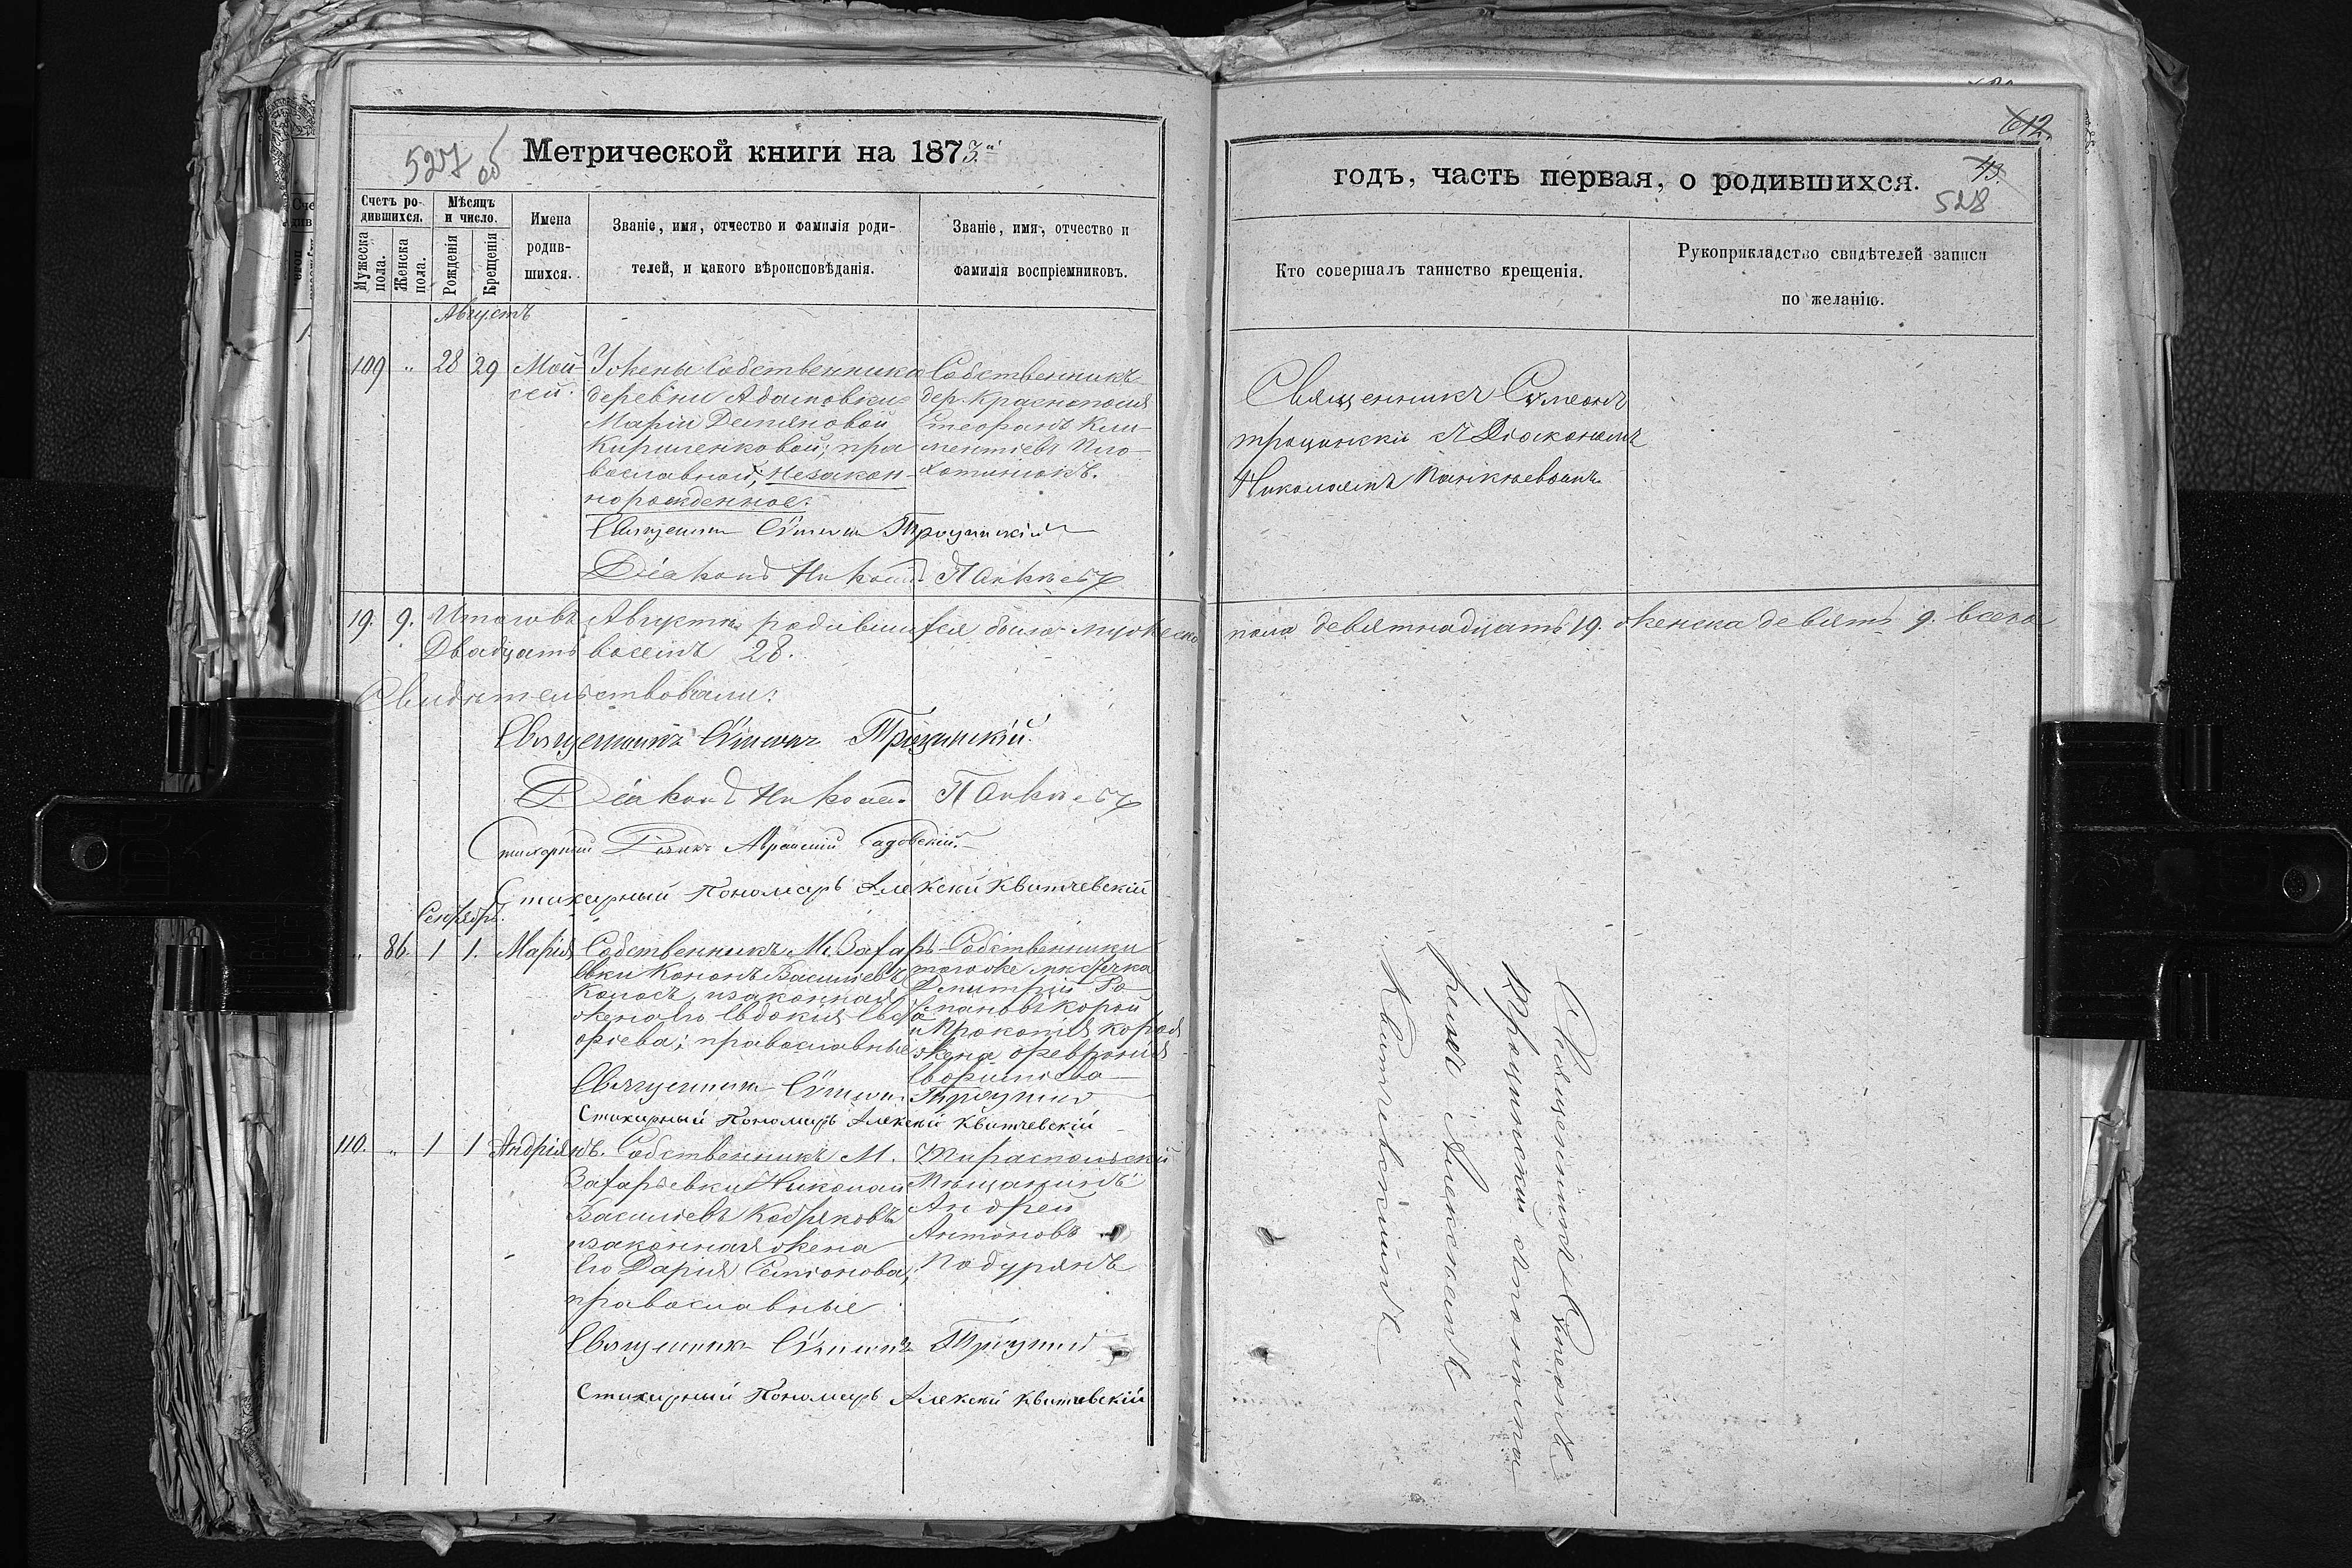 527 об
Метрической книги на 1873.й
Счетъ ро-
дившихся.
Мѣсяцъ
и число.
Мужеска пола.
Женска пола.
Рожденія
Крещенія
Имена
родив-
шихся.
Званіе, имя, отчество и фамилія роди-
телей, и какого вѣроисповѣданія.
Званіе, имя, отчество и
фамилія воспріемниковъ.
Августъ
109 " 28 29 Мои-
сей.
У жены Собственника
деревни Адамовки
Маріи Демяновой
Кириленковой; пра
вославной, незакон-
норожденное.
Собственникъ
дер. Краснополя
Стефанъ Кли-
ментіевъ Пло-
хотнюкъ.
Священникъ Сѵмеонъ Троцинскій
Діаконъ Николай
19. 9. Итого въ Августѣ родившихся было мужеска
Двадцать восемь 28.
Свидѣтельствовали:
Священникъ Сѵмеонъ Троцинскій
Діаконъ Николай
Стихарный Дьякъ Садовскій.
Стихарный Пономарь Алексѣй Квитчевскій
Сентябрь.
" 86. 1 1. Марія
Собственникъ М. Захарь-
евки Кононъ Васильевъ
Колосъ, и законная
жена его Евдокія
православные
Собственники
того же мѣстечка
Димитрій Ро-
мановъ Корой
и Прокопія Короя
жена Февронія
Священникъ Сѵмеонъ
Стихарный Пономарь Алексѣй Квитчевскій
110. " 1 1 Андріянъ.
Собственникъ М.
Захарьевки Николай
Васильевъ Кобряковъ
и законная жена
его Дарія Семіонова,
православные
Тираспольскій
Мѣщанинъ
Андрей
Антоновъ
Подурянъ
Священникъ Сѵмеонъ
Стихарный Пономарь Алексѣй Квитчевскій
612.
годъ, часть первая, о родившихся.
43.
528
Кто совершалъ таинство крещенія.
Рукоприкладство свидѣтелей записи
по желанію.
Священникъ Сѵмеонъ
Троцинскій съ Діакономъ
Николаемъ
пола девятнадцать 19. женска девять 9. всего
Священникъ Сѵмеонъ
Троцинскій съ понома
ремъ Алексѣемъ
Квитчевскимъ